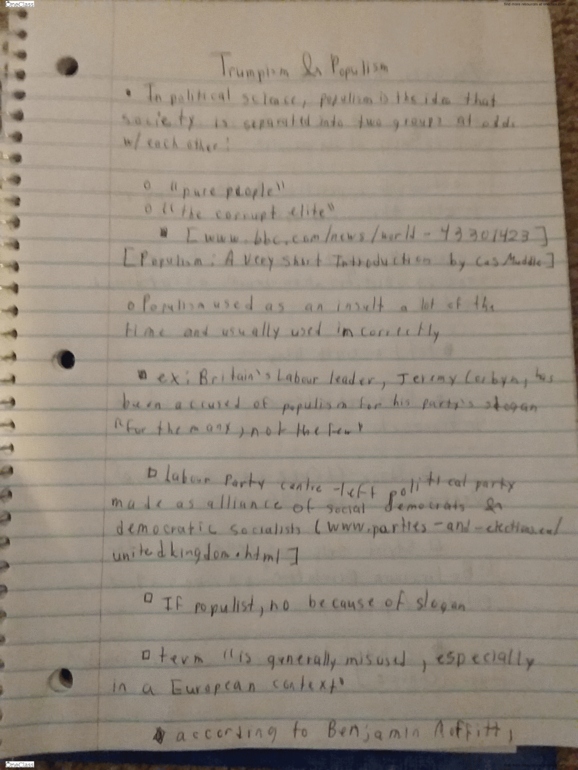 OneClass
Trumpism & Populism
• In political science, populism is the idea that
society is separated into two groups at odds
w/ each other:
o "pure people"
o "the corrupt elite"
▪ [www.bbc.com/news/world-43301423]
[Populism: A Very Short Introduction by Cas Mudde]
o Populism used as an insult a lot of the
time and usually used incorrectly
▪ ex: Britain's Labour leader, Jeremy Corbyn, has
been accused of populism for his party's slogan
"for the many, not the few"
□ Labour Party centre-left political party
made as alliance of social democrats &
democratic socialists [www.parties-and-elections.eu/
unitedkingdom.html]
□ If populist, no because of slogan
□ term "is generally misused, especially
in a European context"
according to Benjamin Moffitt,
OneClass